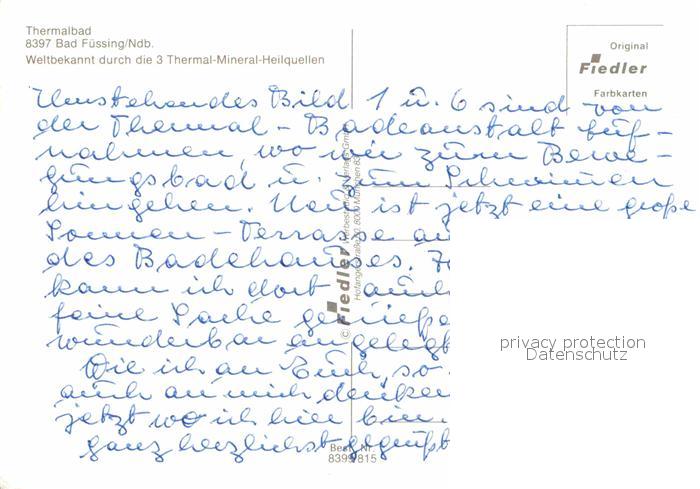 Thermalbad
8397 Bad Füssing/Ndb.
Weltbekannt durch die 3 Thermal-Mineral-Heilquellen
Original
Fiedler
Farbkarten
Umstehendes Bild 1 u. 6 sind von
der Thermal - Badeanstalt Auf-
nahmen, wo wir zum Bewe-
gungsbad u. zum Schwimmen
hingehen. Neu ist jetzt eine große
Sonnen - Terrasse au
des Badehauses.
kann ich dort auch
feine Sache genieße
wunderbar angelegt
Wie ich an Euch, so
auch an mich denken
jetzt wo ich hier bin.
ganz herzlichst gegrüßt
© Fiedler
privacy protection
Datenschutz
Best. Nr.
8399/815